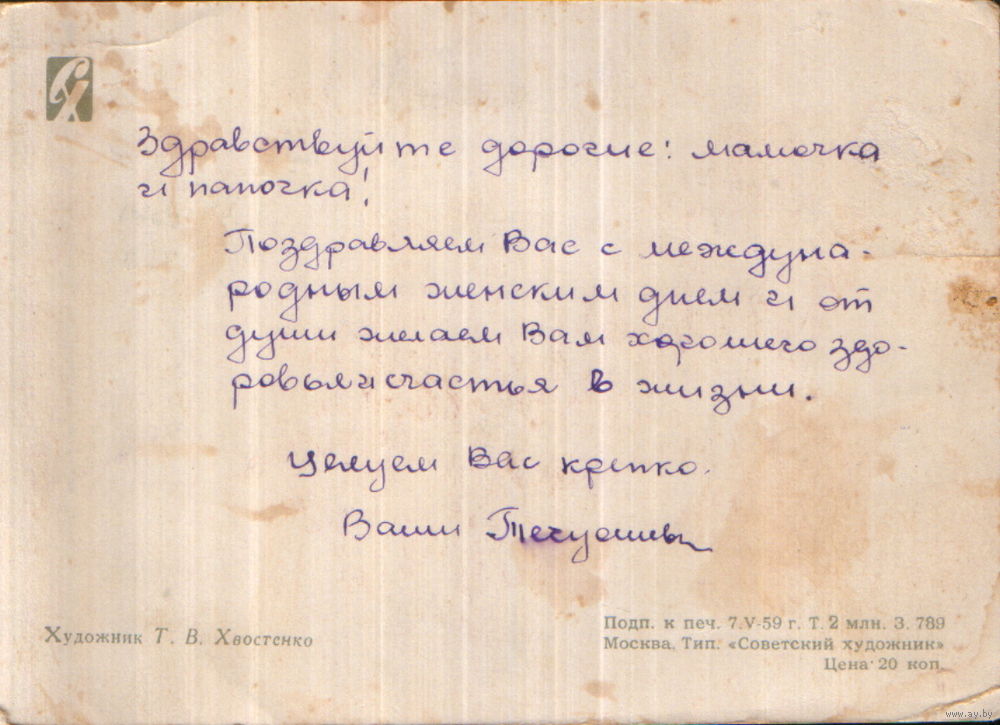 СХ
Здравствуйте дорогие! мамочка
и папочка!
Поздравляем Вас с междуна-
родным женским днем и от
души желаем Вам хорошего здо-
ровья и счастья в жизни.
Целуем Вас крепко.
Ваши
Художник Т. В. Хвостенко
Подп. к печ. 7.V-59 г. Т. 2 млн. З. 789
Москва, Тип. «Советский художник»
Цена 20 коп.
www.ay.by